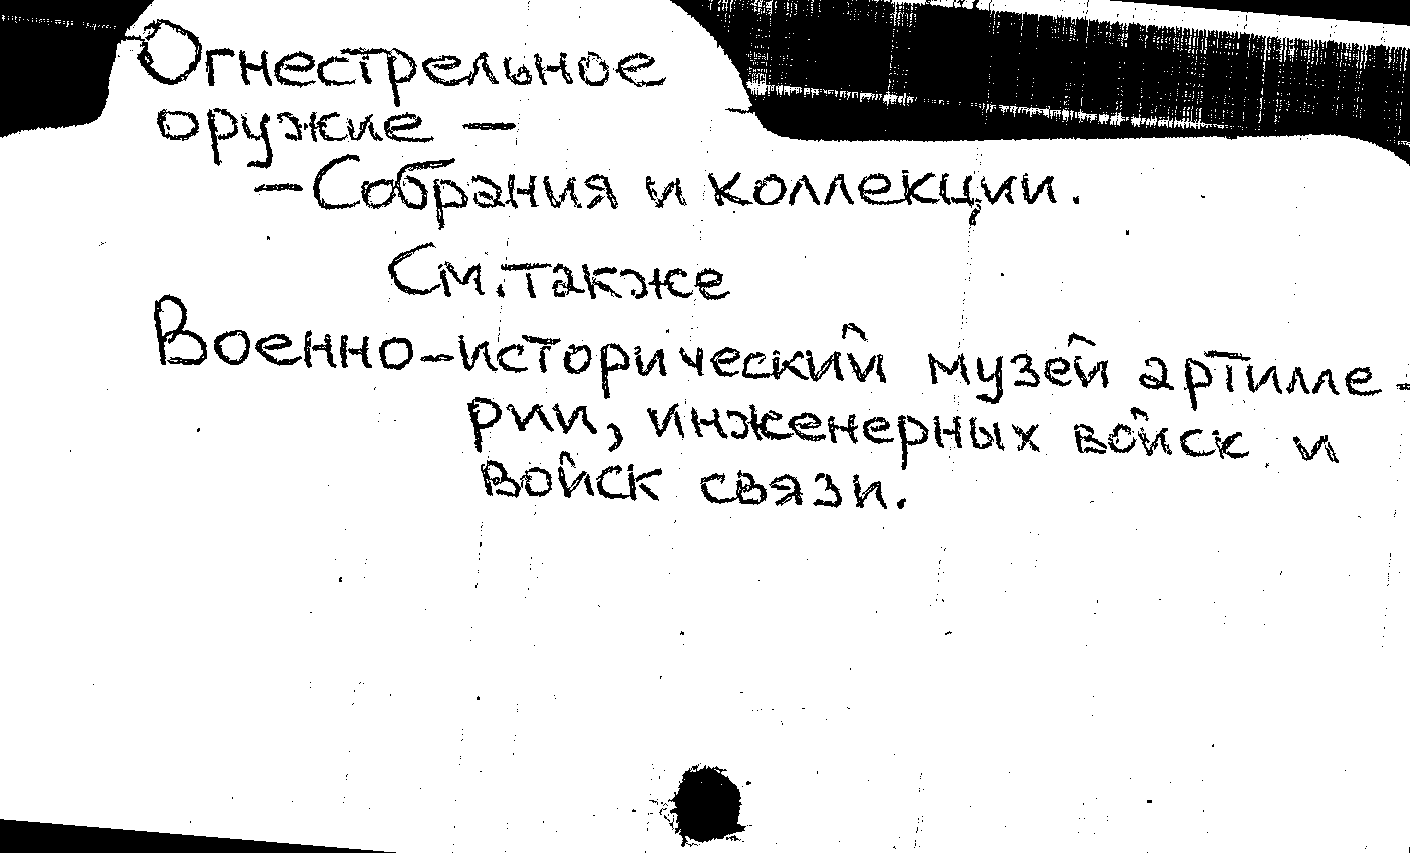 Огнестрельное
оружие —
— Собрания и коллекции.
См. также
Военно-исторический музей артилле-
рии, инженерных войск и
войск связи.